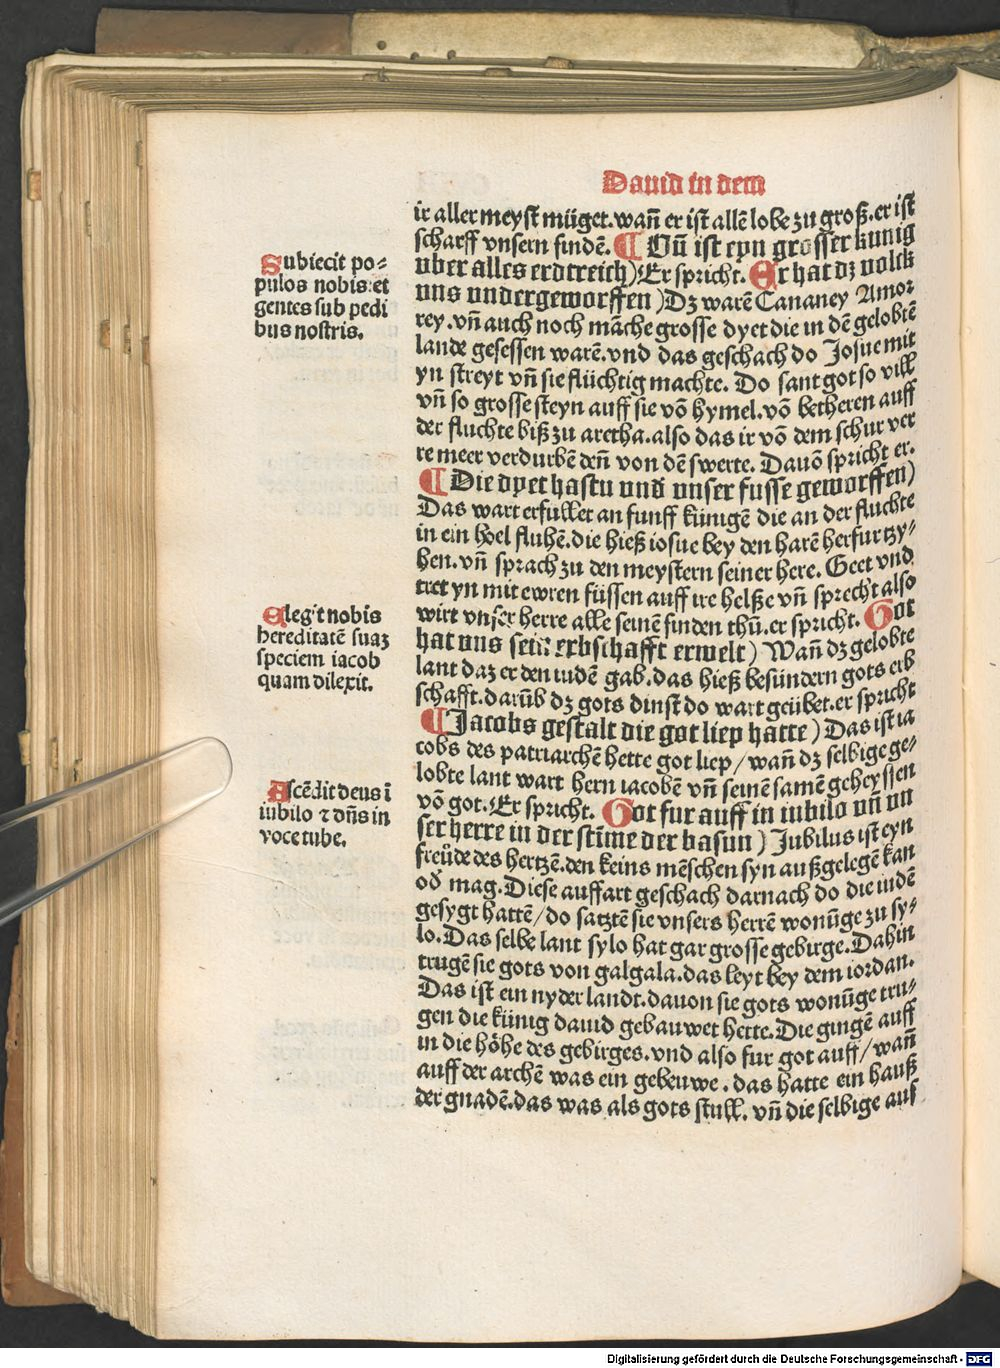 Dauid in dem
ir aller meyst müget. wañ er ist allē lobe zu groß. er ist
scharff vnsern sindē. ¶ Uū ist eyn grosser kunig
uber alles erdtreich) Er spricht. Er hat dz volck
uns undergeworffen) Dz warē Cananey Amor
rey. vñ auch noch māche grosse dyet die in dē gelobtē
lande gesessen warē. vnd das geschach do Josue mit
yn streyt vñ sie flüchtig machte. Do sant got so vill
vñ so grosse steyn auff sie vō hymel. vō betheren auff
der fluchte biß zu aretha. also das ir vō dem schur ver
re meer verdurbē deñ von dē swerte. Dauō spricht er.
¶ Die dyet hastu und unser fusse geworffen)
Das wart erfullet an funff künigē die an der fluchte
in ein hoel fluhē. die hieß iosue bey den harē herfur tzy⸗
hen. vñ sprach zu den meystern seiner here. Geet vnd
tret yn mit ewren füssen auff ire helße vñ sprecht also
wirt vnser herre alle seinē finden thū. er spricht. Got
hat uns sein erbschafft erwelt) Wañ dz gelobte
lant daz er den iudē gab. das hieß besündern gots erb
schafft. darūb dz gots dinst do wart geübet. er spricht
¶ Jacobs gestalt die got liep hatte) Das ist ia
cobs des patriarchē hette got liep/ wañ dz selbige ge⸗
lobte lant wart hern iacobē vñ seinē samē geheyssen
vō got. Er spricht. Got fur auff in iubilo uñ un
ser herre in der stīme der basun) Jubilus ist eyn
freůde des hertzē. den keins mēschen syn außgelegē kan
od̄ mag. Diese auffart geschach darnach do die iudē
gesygt hattē/ do satztē sie vnsers herrē wonūge zu sy⸗
lo. Das selbe lant sylo hat gar grosse gebirge. Dahin
trugē sie gots von galgala. das leyt bey dem iordan.
Das ist ein nyder landt. dauon sie gots wonūge tru⸗
gen die künig dauid gebauwet hette. Die gingē auff
in die höhe des gebirges. vnd also fur got auff/ wañ
auff der archē was ein gebeuwe. das hatte ein hauß
der gnadē. das was als gots stull. vñ die selbige auf
Subiecit po⸗
pulos nobis: et
gentes sub pedi
bus nostris.
Elegit nobis
hereditatē suaz
speciem iacob
quam dilexit.
Ascēdit deus ī
iubilo ⁊ dñs in
voce tube.
Digitalisierung gefördert durch die Deutsche Forschungsgemeinschaft - DFG